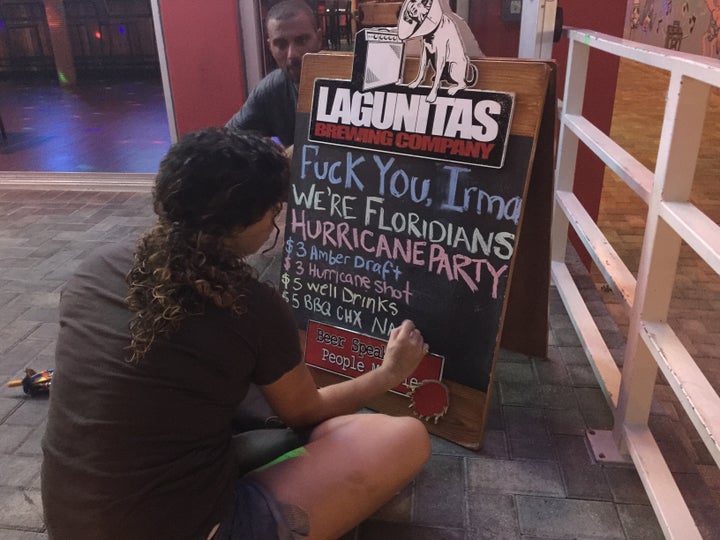 LAGUNITAS
BREWING COMPANY
Fuck You, Irma
WE'RE FLORIDIANS
HURRICANE PARTY
$3 Amber Draft
$3 Hurricane Shot
$5 Well Drinks
$5 BBQ CHX
Beer
People